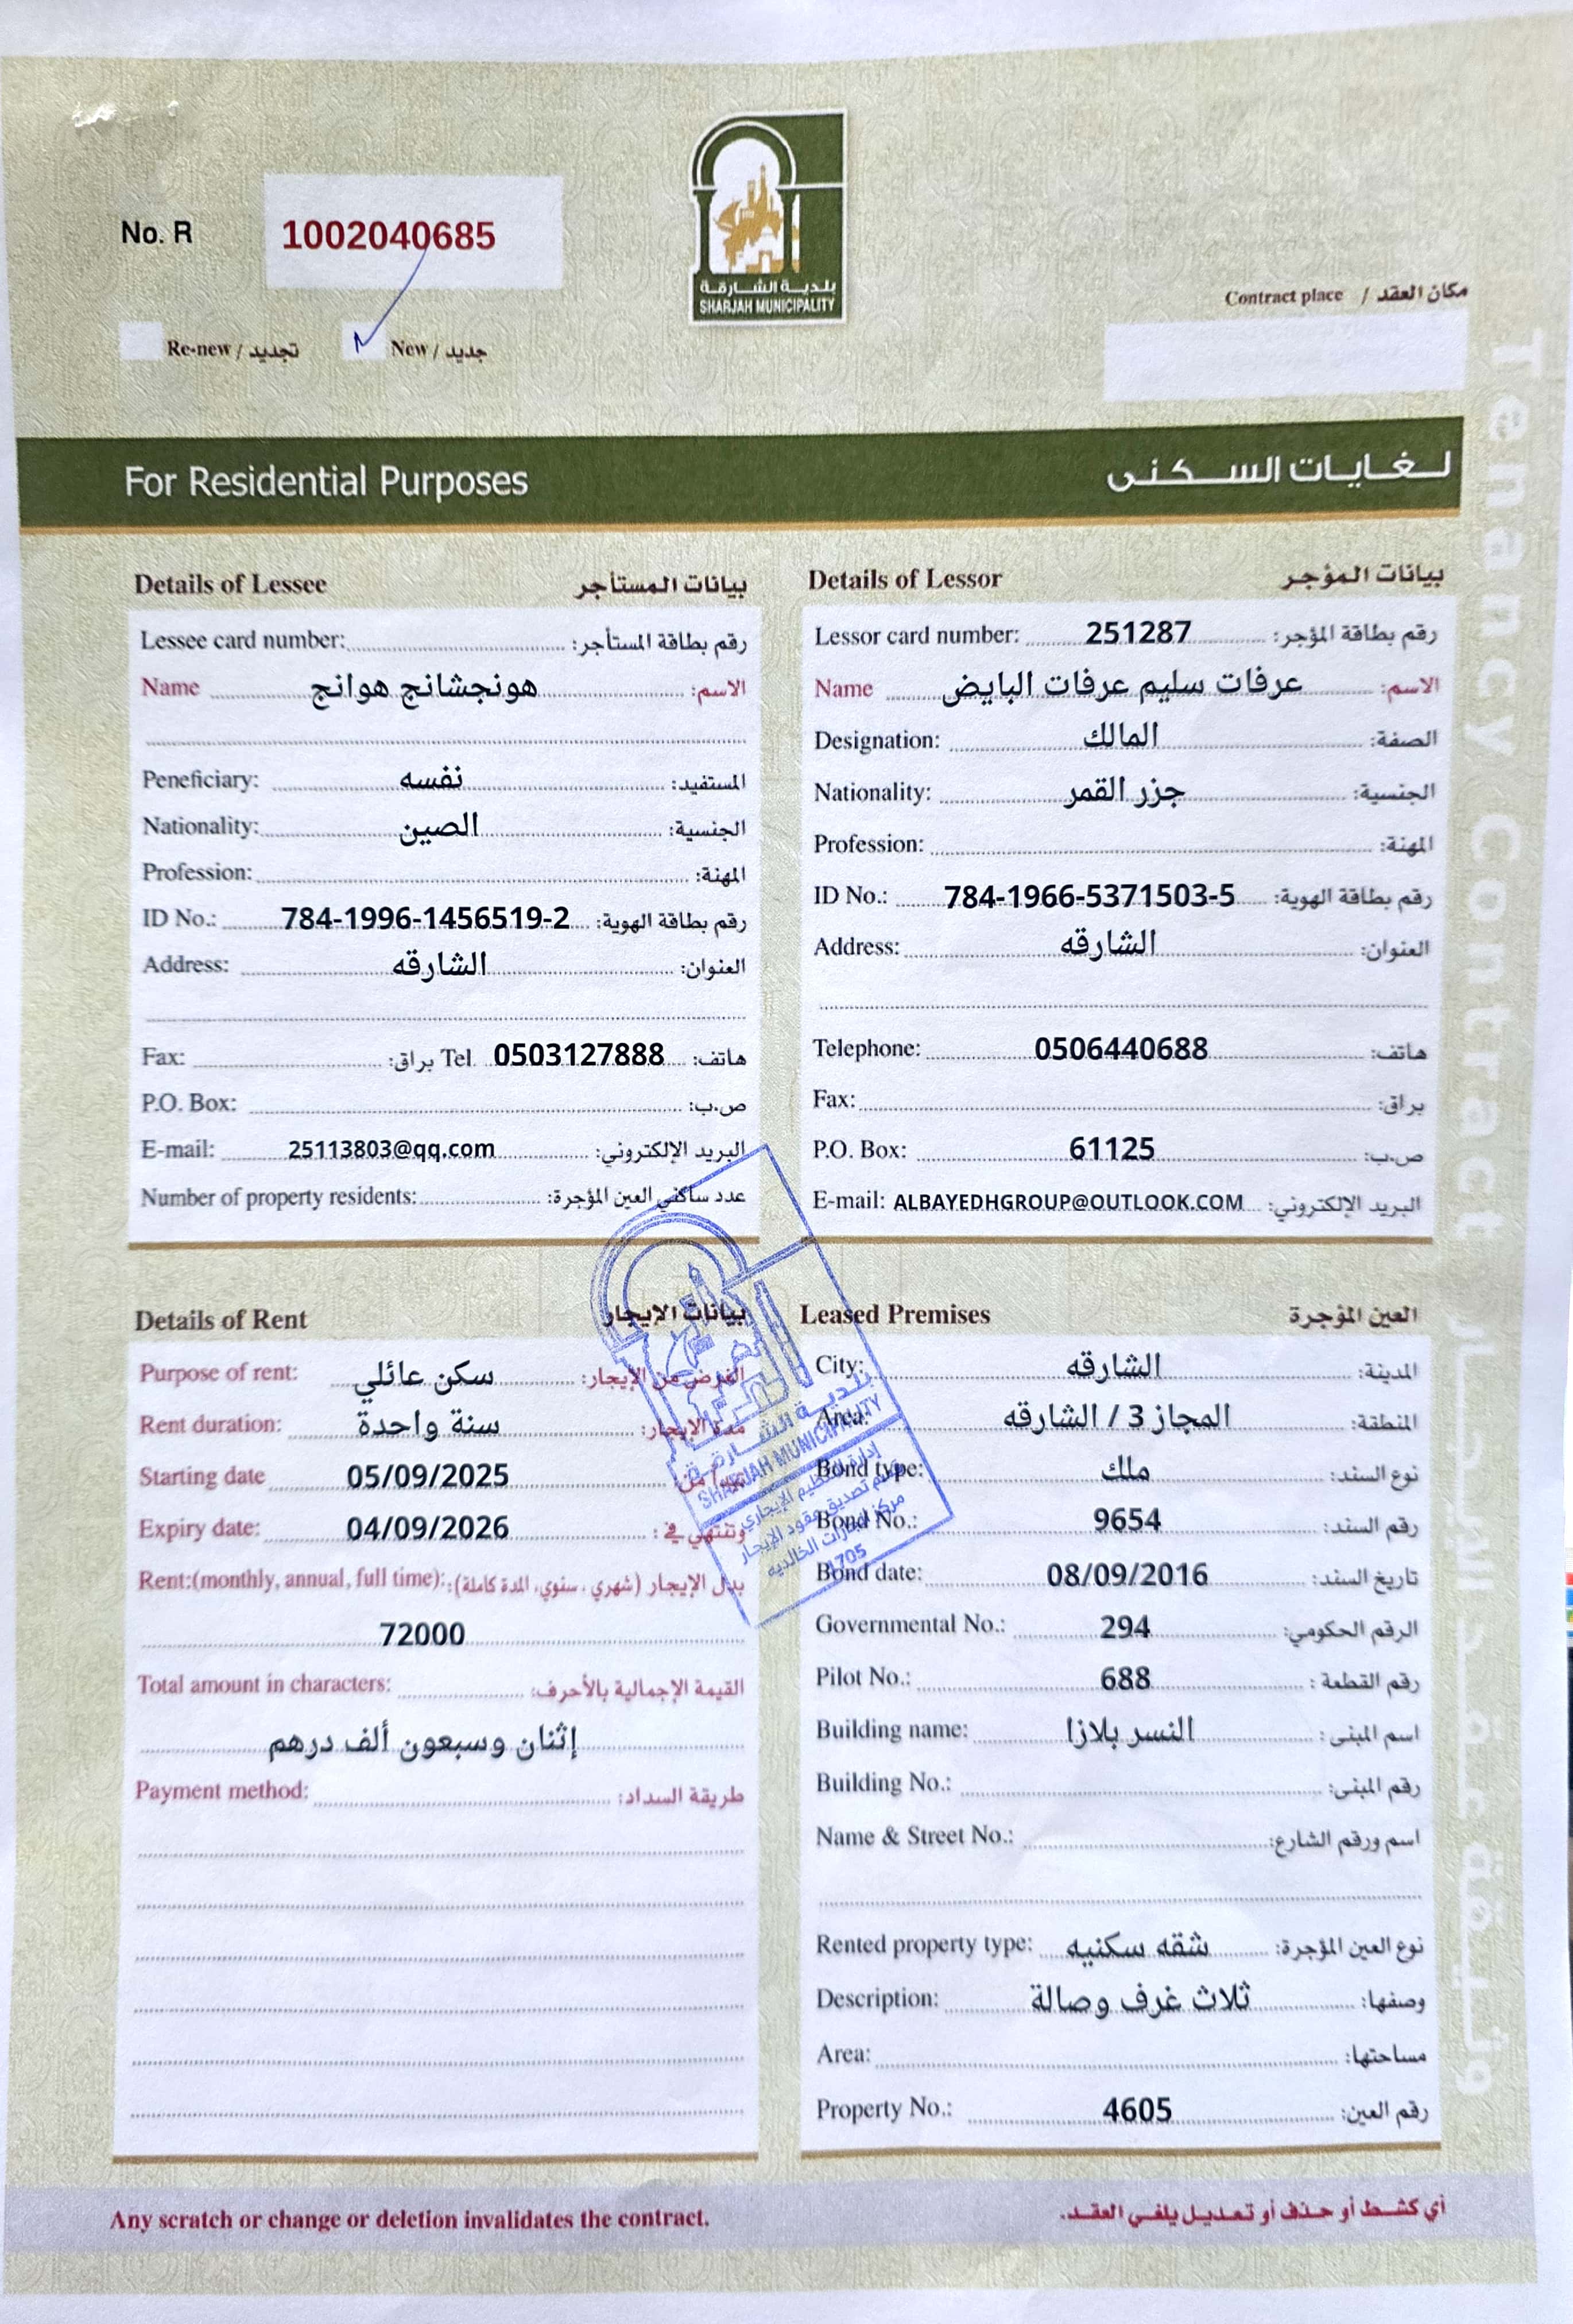 No. R 1002040685
بلدية الشارقة
SHARJAH MUNICIPALITY
Contract place / مكان العقد
Re-new / تجديد
New / جديد
For Residential Purposes
لغايات السكنى
Tenancy Contract
وثيقة عقد الإيجار
Details of Lessee بيانات المستأجر
Lessee card number: رقم بطاقة المستأجر:
Name هونجشانج هوانج الاسم:
Peneficiary: نفسه المستفيد:
Nationality: الصين الجنسية:
Profession: المهنة:
ID No.: 784-1996-1456519-2 رقم بطاقة الهوية:
Address: الشارقه العنوان:
Fax: براق: Tel. 0503127888 هاتف:
P.O. Box: ص.ب:
E-mail: 25113803@qq.com البريد الإلكتروني:
Number of property residents: عدد ساكني العين المؤجرة:
Details of Lessor بيانات المؤجر
Lessor card number: 251287 رقم بطاقة المؤجر:
Name عرفات سليم عرفات البايض الاسم:
Designation: المالك الصفة:
Nationality: جزر القمر الجنسية:
Profession: المهنة:
ID No.: 784-1966-5371503-5 رقم بطاقة الهوية:
Address: الشارقه العنوان:
Telephone: 0506440688 هاتف:
Fax: براق:
P.O. Box: 61125 ص.ب:
E-mail: ALBAYEDHGROUP@OUTLOOK.COM البريد الإلكتروني:
Details of Rent بيانات الايجار
Purpose of rent: سكن عائلي الغرض من الإيجار:
Rent duration: سنة واحدة مدة الإيجار:
Starting date 05/09/2025
Expiry date: 04/09/2026 وتنتهي في :
Rent:(monthly, annual, full time): بدل الإيجار (شهري ، سنوي، المدة كاملة):
72000
Total amount in characters: القيمة الإجمالية بالأحرف:
إثنان وسبعون ألف درهم
Payment method: طريقة السداد:
بلدية الشارقة
SHARJAH MUNICIPALITY
إدارة التنظيم الإيجاري
قسم تصديق عقود الإيجار
1705
Leased Premises العين المؤجرة
City: الشارقه المدينة:
Area: المجاز 3 / الشارقه المنطقة:
Bond type: ملك نوع السند:
Bond No.: 9654 رقم السند:
Bond date: 08/09/2016 تاريخ السند:
Governmental No.: 294 الرقم الحكومي:
Pilot No.: 688 رقم القطعة :
Building name: النسر بلازا اسم المبنى :
Building No.: رقم المبنى:
Name & Street No.: اسم ورقم الشارع:
Rented property type: شقه سكنيه نوع العين المؤجرة:
Description: ثلاث غرف وصالة وصفها:
Area: مساحتها:
Property No.: 4605 رقم العين:
Any scratch or change or deletion invalidates the contract.
أي كشط أو حذف أو تعديل يلغي العقد.